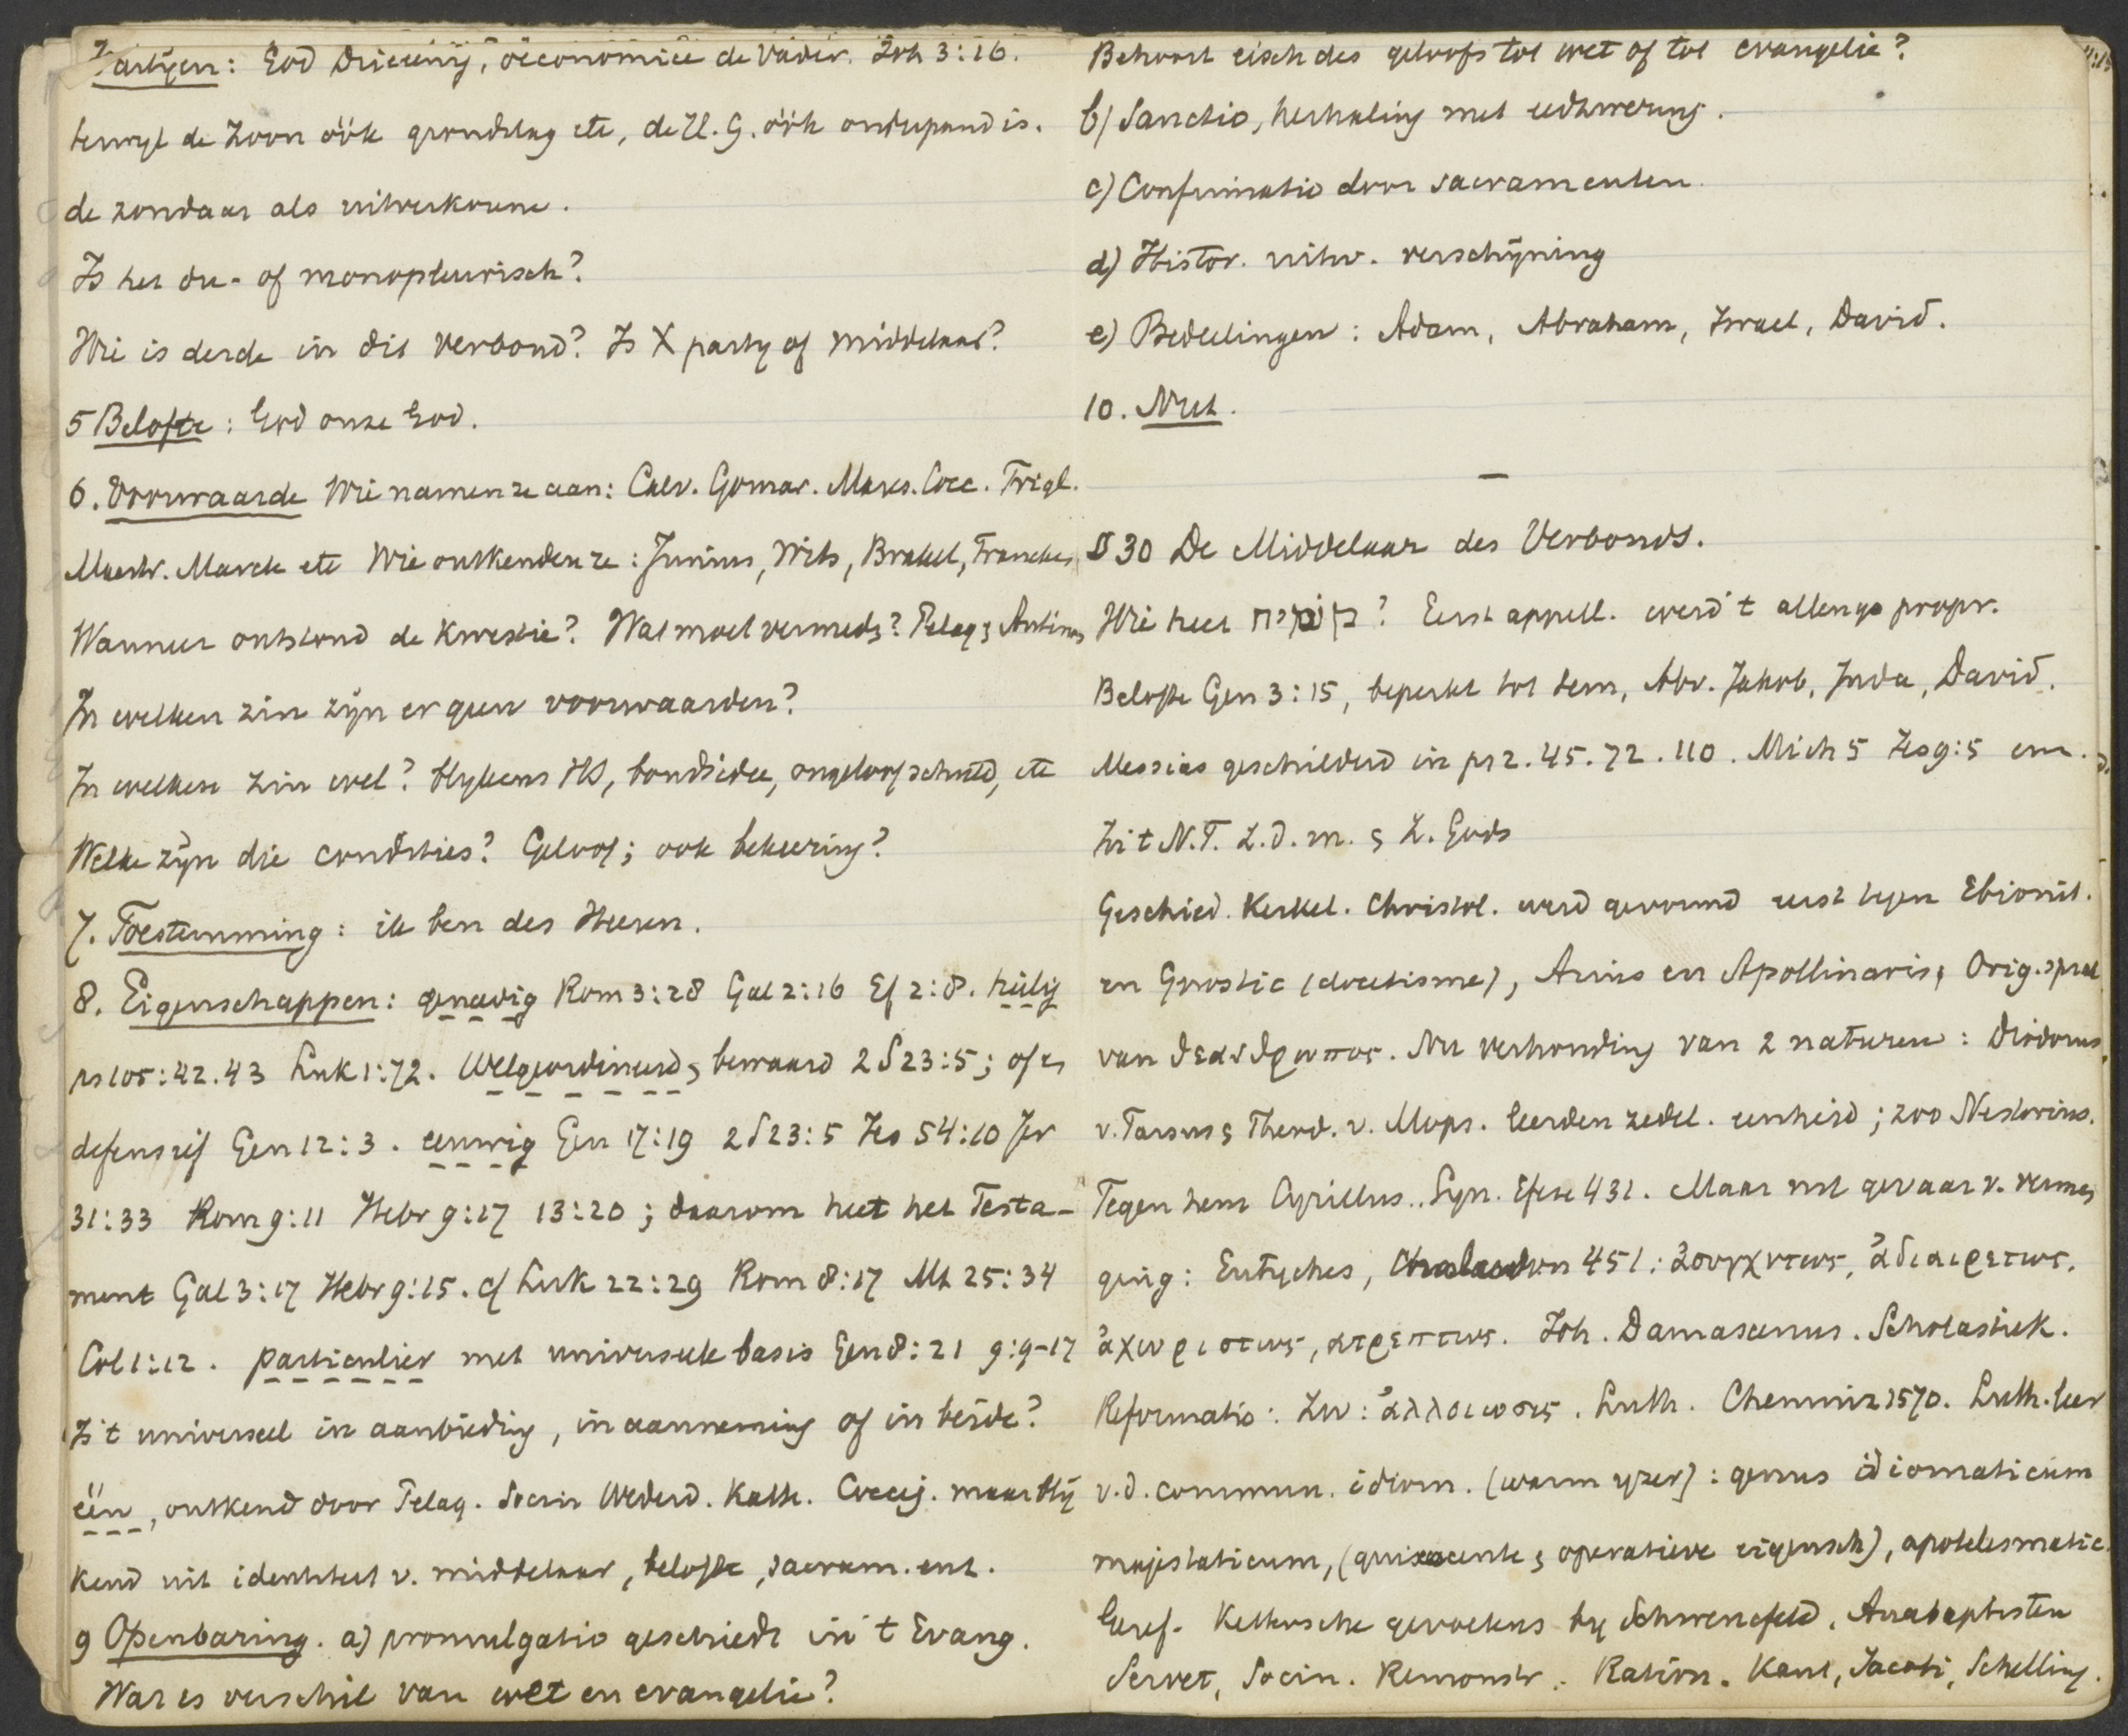 Partijen: God Drieeenig, oeconomice de Vader. Joh 3:16.
terwyl de Zoon óók grondslag etc, de H. G. óók onderpand is.
de zondaar als uitverkorene.
Is het due- of monopleurisch?
Wie is derde in dit verbond? Is X party of middelaar?
5 Belofte: God onze God.
6. Voorwaarde Wie namen ze aan: Calv. Gomar. Mares. Cocc. Trigl.
Mastr. Marck etc Wie ontkenden ze: Junius, Wits, Brakel, Francken
Wanneer ontstond de kwestie? Wat moet vermeden? Pelag & Antinom
In welken zin zijn er geen voorwaarden?
In welken zin wel? blykens HS, bondsidee, ongeloof schuld, etc
Welke zijn die condities? Geloof; ook bekeering?
7. Toestemming: ik ben des Heeren.
8. Eigenschappen: genadig Rom 3:28 Gal 2:16 Ef 2:8. heilig
ps 105:42.43 Luk 1:72. Welgeordineerd & bewaard 2 S 23:5; of &
defensief Gen 12:3. eeuwig Gen 17:19 2 S 23:5 Jes 54:10 Jer
31:33 Rom 9:11 Hebr 9:17 13:20; daarom heet het Testa-
ment Gal 3:17 Hebr 9:15. cf Luk 22:29 Rom 8:17 Mt 25:34
Col 1:12. particulier met universeele basis Gen 8:21 9:9-17
Is 't universeel in aanbieding, in aanneming of in beide?
één, ontkend door Pelag. Socin Wederd. Kath. Coccej. maar blij
kend uit identiteit v. middelaar, belofte, sacram. enz.
9 Openbaring. a) promulgatio geschiedt in 't Evang.
Wat is verschil van wet en evangelie?
Behoort eisch des geloofs tot wet of tot evangelie?
b) Sanctio, herhaling met eedzwering.
c) Confirmatio door sacramenten.
d) Histor. uitw. verschijning
e) Bedeelingen: Adam, Abraham, Israel, David.
10. Nut.
—
§ 30 De Middelaar des Verbonds.
Wie heet משיח? Eerst appell. werd 't allengs propr.
Belofte Gen 3:15, beperkt tot Sem, Abr. Jakob, Juda, David.
Messias geschilderd in ps 2. 45. 72. 110. Mich 5 Jes 9:5 enz.
In 't N.T. Z.d.m. & Z. Gods
Geschied. Kerkel. Christol. werd gevormd eerst tegen Ebionit.
en Gnostic (docetisme), Arius en Apollinaris, Orig. sprak
van θεανθρωπος. Nu verhouding van 2 naturen: Diodorus
v. Tarsus & Theod. v. Mops. leerden zedel. eenheid; zoo Nestorius.
Tegen hem Cyrillus.. Syn. Efeze 431. Maar met gevaar v. vermen
ging: Eutyches, Chalcedon 451: ἀσυγχυτως, ἀδιαιρετως,
ἀχωριστως, ατρεπτως. Joh. Damascenus. Scholastiek.
Reformatio: Zw: ἀλλοιωσις. Luth. Chemniz 1570. Luth. leer
v.d. commun. idiom. (warm yzer): genus idiomaticum
majestaticum, (quiescente & operatieve eigensch), apotelesmatic.
Geref. Kettersche gevoelens by Schwenckfeld, Anabaptisten
Servet, Socin. Remonstr. Ration. Kant, Jacobi, Schelling.